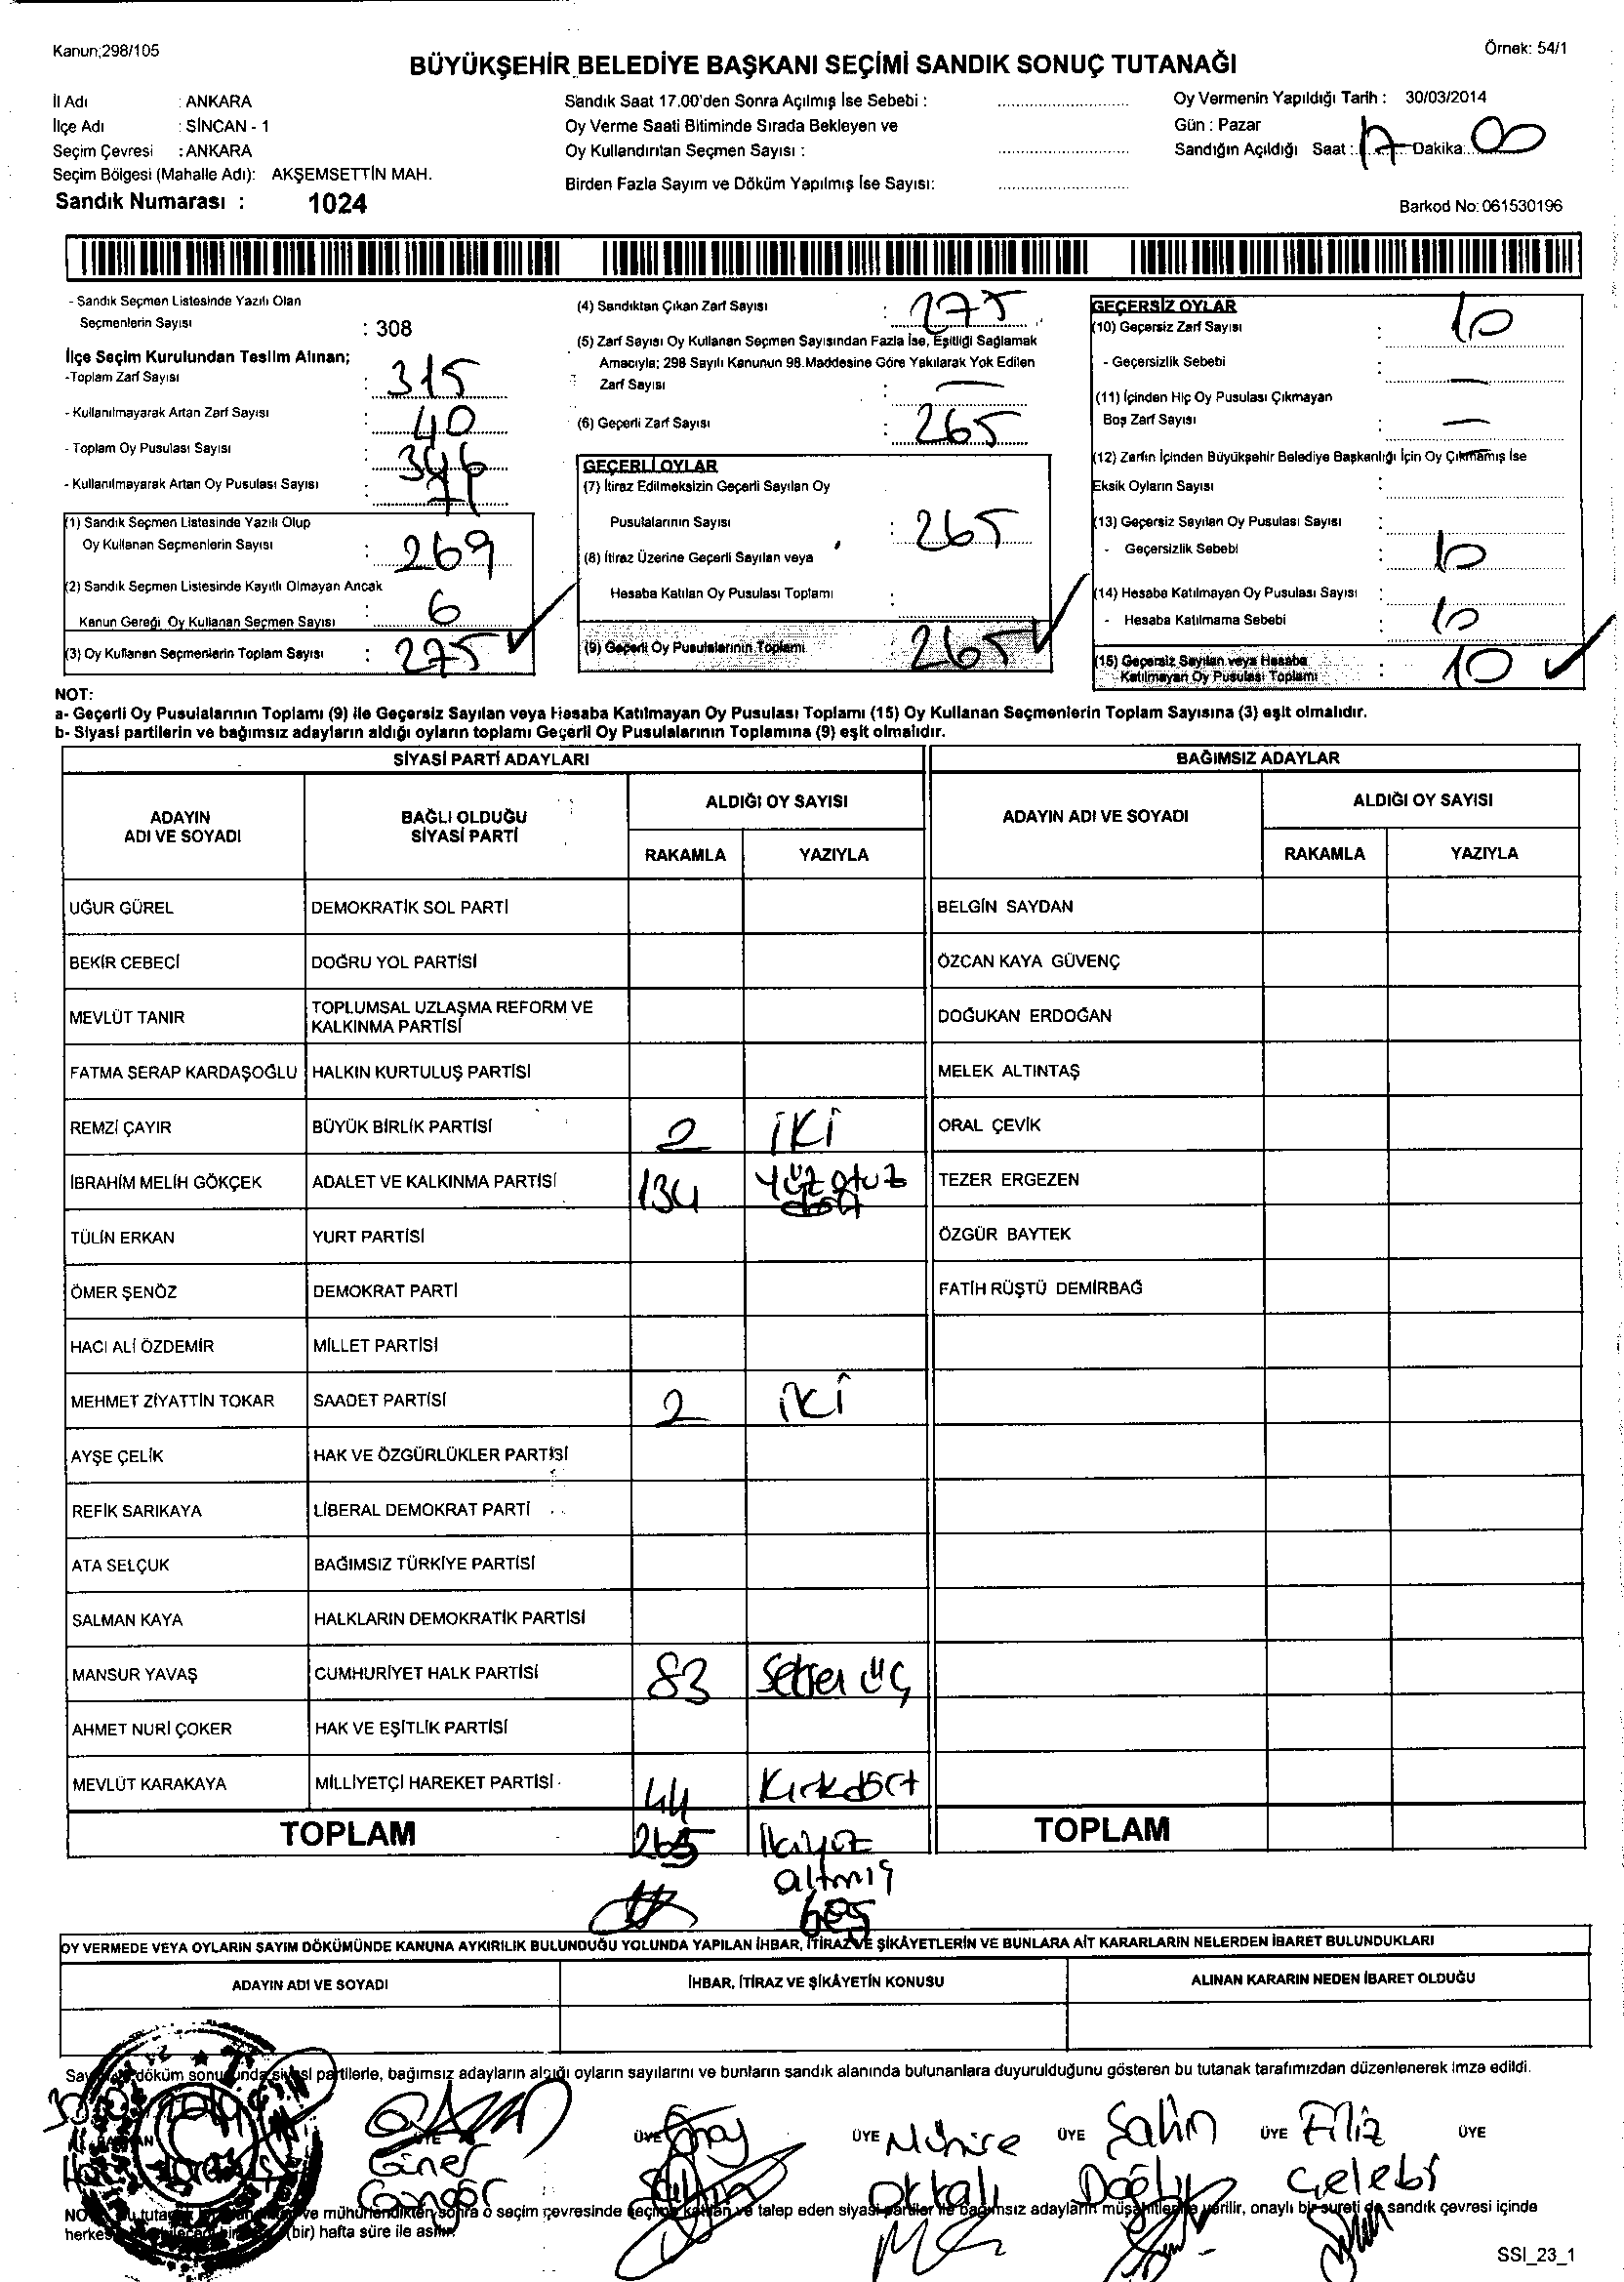 Kanun;298/105
Örnek: 54/1
BÜYÜKŞEHİR BELEDİYE BAŞKANI SEÇİMİ SANDIK SONUÇ TUTANAĞI
İl Adı : ANKARA
İlçe Adı : SİNCAN - 1
Seçim Çevresi : ANKARA
Seçim Bölgesi (Mahalle Adı): AKŞEMSETTİN MAH.
Sandık Numarası : 1024
Sandık Saat 17.00'den Sonra Açılmış İse Sebebi :
Oy Verme Saati Bitiminde Sırada Bekleyen ve
Oy Kullandırılan Seçmen Sayısı :
Birden Fazla Sayım ve Döküm Yapılmış İse Sayısı:
Oy Vermenin Yapıldığı Tarih : 30/03/2014
Gün : Pazar
Sandığın Açıldığı Saat : 17 Dakika: 00
Barkod No: 061530196
- Sandık Seçmen Listesinde Yazılı Olan
Seçmenlerin Sayısı : 308
İlçe Seçim Kurulundan Teslim Alınan;
-Toplam Zarf Sayısı : 315
- Kullanılmayarak Artan Zarf Sayısı : 40
- Toplam Oy Pusulası Sayısı : 346
- Kullanılmayarak Artan Oy Pusulası Sayısı : 71
(1) Sandık Seçmen Listesinde Yazılı Olup
Oy Kullanan Seçmenlerin Sayısı : 269
(2) Sandık Seçmen Listesinde Kayıtlı Olmayan Ancak
Kanun Gereği Oy Kullanan Seçmen Sayısı : 6
(3) Oy Kullanan Seçmenlerin Toplam Sayısı : 275
(4) Sandıktan Çıkan Zarf Sayısı : 275
(5) Zarf Sayısı Oy Kullanan Seçmen Sayısından Fazla İse, Eşitliği Sağlamak
Amacıyla; 298 Sayılı Kanunun 98.Maddesine Göre Yakılarak Yok Edilen
Zarf Sayısı : —
(6) Geçerli Zarf Sayısı : 265
GEÇERLİ OYLAR
(7) İtiraz Edilmeksizin Geçerli Sayılan Oy
Pusulalarının Sayısı : 265
(8) İtiraz Üzerine Geçerli Sayılan veya
Hesaba Katılan Oy Pusulası Toplamı :
(9) Geçerli Oy Pusulalarının Toplamı 265
GEÇERSİZ OYLAR
(10) Geçersiz Zarf Sayısı : 10
- Geçersizlik Sebebi : —
(11) İçinden Hiç Oy Pusulası Çıkmayan
Boş Zarf Sayısı : —
(12) Zarfın İçinden Büyükşehir Belediye Başkanlığı İçin Oy Çıkmamış İse
Eksik Oyların Sayısı : —
(13) Geçersiz Sayılan Oy Pusulası Sayısı :
- Geçersizlik Sebebi : 10
(14) Hesaba Katılmayan Oy Pusulası Sayısı :
- Hesaba Katılmama Sebebi : 10
(15) Geçersiz Sayılan veya Hesaba
Katılmayan Oy Pusulası Toplamı : 10
NOT:
a- Geçerli Oy Pusulalarının Toplamı (9) ile Geçersiz Sayılan veya Hesaba Katılmayan Oy Pusulası Toplamı (15) Oy Kullanan Seçmenlerin Toplam Sayısına (3) eşit olmalıdır.
b- Siyasi partilerin ve bağımsız adayların aldığı oyların toplamı Geçerli Oy Pusulalarının Toplamına (9) eşit olmalıdır.
SİYASİ PARTİ ADAYLARI
ADAYIN
ADI VE SOYADI
BAĞLI OLDUĞU
SİYASİ PARTİ
ALDIĞI OY SAYISI
RAKAMLA YAZIYLA
UĞUR GÜREL DEMOKRATİK SOL PARTİ
BEKİR CEBECİ DOĞRU YOL PARTİSİ
MEVLÜT TANIR TOPLUMSAL UZLAŞMA REFORM VE
KALKINMA PARTİSİ
FATMA SERAP KARDAŞOĞLU HALKIN KURTULUŞ PARTİSİ
REMZİ ÇAYIR BÜYÜK BİRLİK PARTİSİ 2 İKİ
İBRAHİM MELİH GÖKÇEK ADALET VE KALKINMA PARTİSİ 134 Yüz otuz
dört
TÜLİN ERKAN YURT PARTİSİ
ÖMER ŞENÖZ DEMOKRAT PARTİ
HACI ALİ ÖZDEMİR MİLLET PARTİSİ
MEHMET ZİYATTİN TOKAR SAADET PARTİSİ 2 iki
AYŞE ÇELİK HAK VE ÖZGÜRLÜKLER PARTİSİ
REFİK SARIKAYA LİBERAL DEMOKRAT PARTİ
ATA SELÇUK BAĞIMSIZ TÜRKİYE PARTİSİ
SALMAN KAYA HALKLARIN DEMOKRATİK PARTİSİ
MANSUR YAVAŞ CUMHURİYET HALK PARTİSİ 83 Seksen üç
AHMET NURİ ÇOKER HAK VE EŞİTLİK PARTİSİ
MEVLÜT KARAKAYA MİLLİYETÇİ HAREKET PARTİSİ 44 Kırkdört
TOPLAM 265 İkiyüz
altmış
beş
BAĞIMSIZ ADAYLAR
ADAYIN ADI VE SOYADI
ALDIĞI OY SAYISI
RAKAMLA YAZIYLA
BELGİN SAYDAN
ÖZCAN KAYA GÜVENÇ
DOĞUKAN ERDOĞAN
MELEK ALTINTAŞ
ORAL ÇEVİK
TEZER ERGEZEN
ÖZGÜR BAYTEK
FATİH RÜŞTÜ DEMİRBAĞ
TOPLAM
OY VERMEDE VEYA OYLARIN SAYIM DÖKÜMÜNDE KANUNA AYKIRILIK BULUNDUĞU YOLUNDA YAPILAN İHBAR, İTİRAZ VE ŞİKÂYETLERİN VE BUNLARA AİT KARARLARIN NELERDEN İBARET BULUNDUKLARI
ADAYIN ADI VE SOYADI
İHBAR, İTİRAZ VE ŞİKÂYETİN KONUSU
ALINAN KARARIN NEDEN İBARET OLDUĞU
döküm sonucunda siyasi partilerle, bağımsız adayların aldığı oyların sayılarını ve bunların sandık alanında bulunanlara duyurulduğunu gösteren bu tutanak tarafımızdan düzenlenerek imza edildi.
ÜYE ÜYE Münire ÜYE Şahin ÜYE Filiz ÜYE
Güner
Güngör Çelebi
ve mühürlendikten sonra o seçim çevresinde seçime katılan ve talep eden siyasi partiler ile bağımsız adayların müşahitlerine verilir, onaylı bir sureti de sandık çevresi içinde
(bir) hafta süre ile asılır.
SSI_23_1